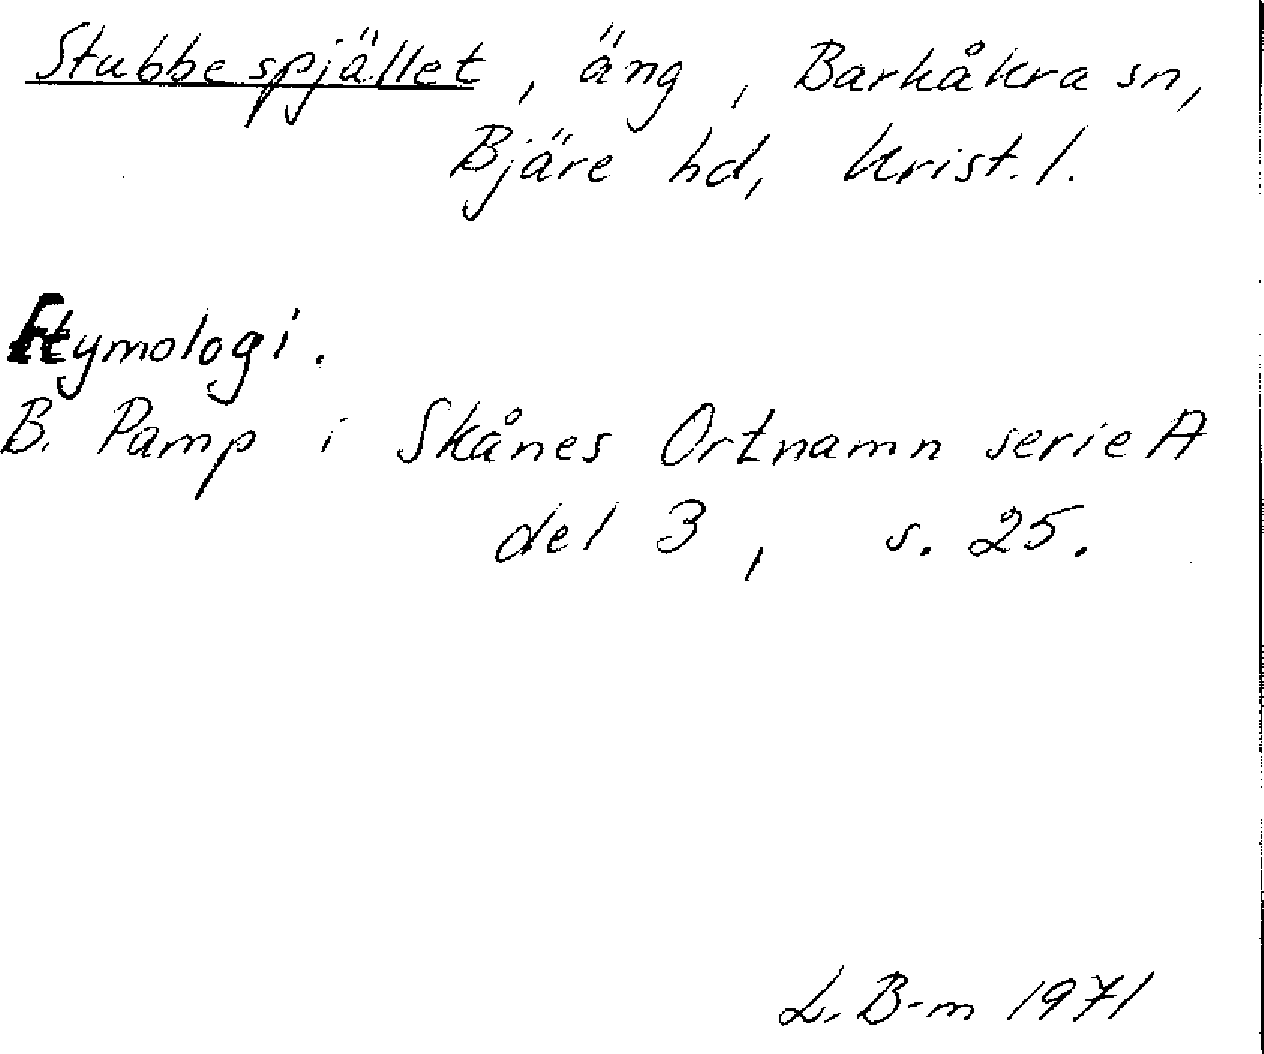 Stubbespjället, äng, Barkåkra sn,
Bjäre hd, Krist. l.
Etymologi.
B. Pamp i Skånes Ortnamn serie A
del 3, s. 25.
L. B-m 1971